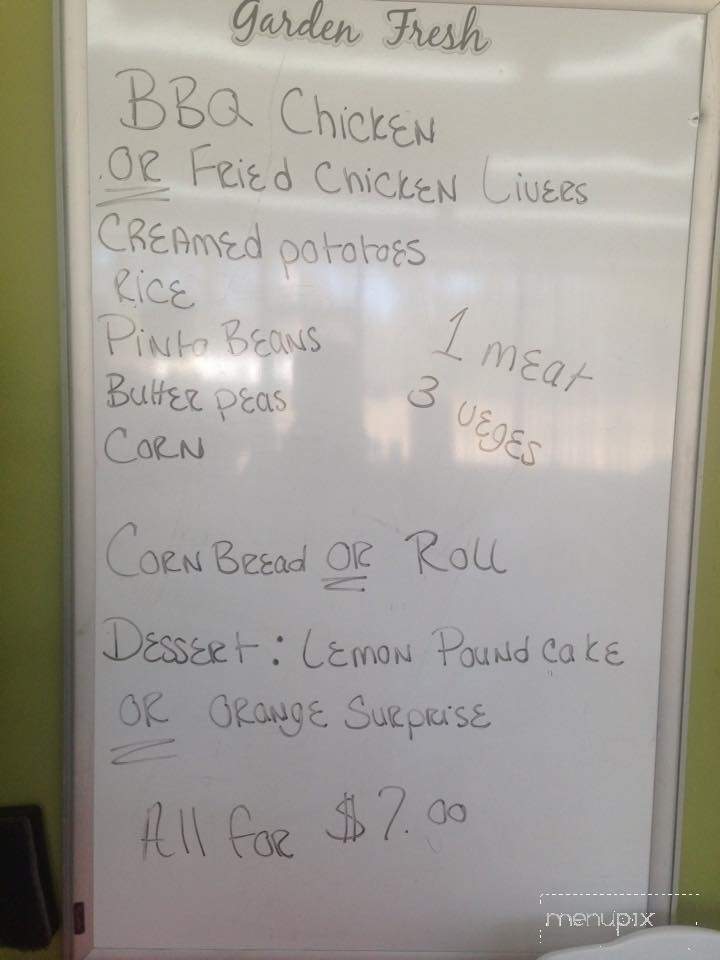 Garden Fresh
BBQ Chicken
OR Fried Chicken Livers
Creamed pototoes
Rice
Pinto Beans
Butter peas
Corn
1 meat
3 veges
Corn Bread OR Roll
Dessert: Lemon Pound cake
OR Orange Surprise
All for $7.00
menupix